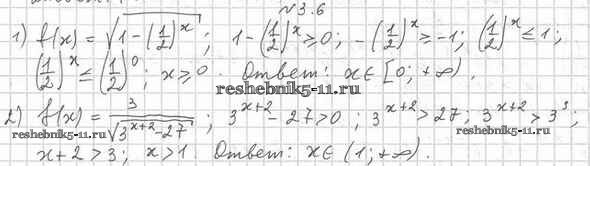 №3.6
1) f(x) = √(1-(1/2)^x) ; 1-(1/2)^x ≥ 0; -(1/2)^x ≥ -1; (1/2)^x ≤ 1;
(1/2)^x ≤ (1/2)^0; x ≥ 0. Ответ: x ∈ [0; +∞).
reshebnik5-11.ru
2) f(x) = 3/√(3^(x+2)-27) ; 3^(x+2) - 27 > 0; 3^(x+2) > 27; 3^(x+2) > 3^3;
reshebnik5-11.ru reshebnik5-11.ru
x+2 > 3; x > 1. Ответ: x ∈ (1; +∞).